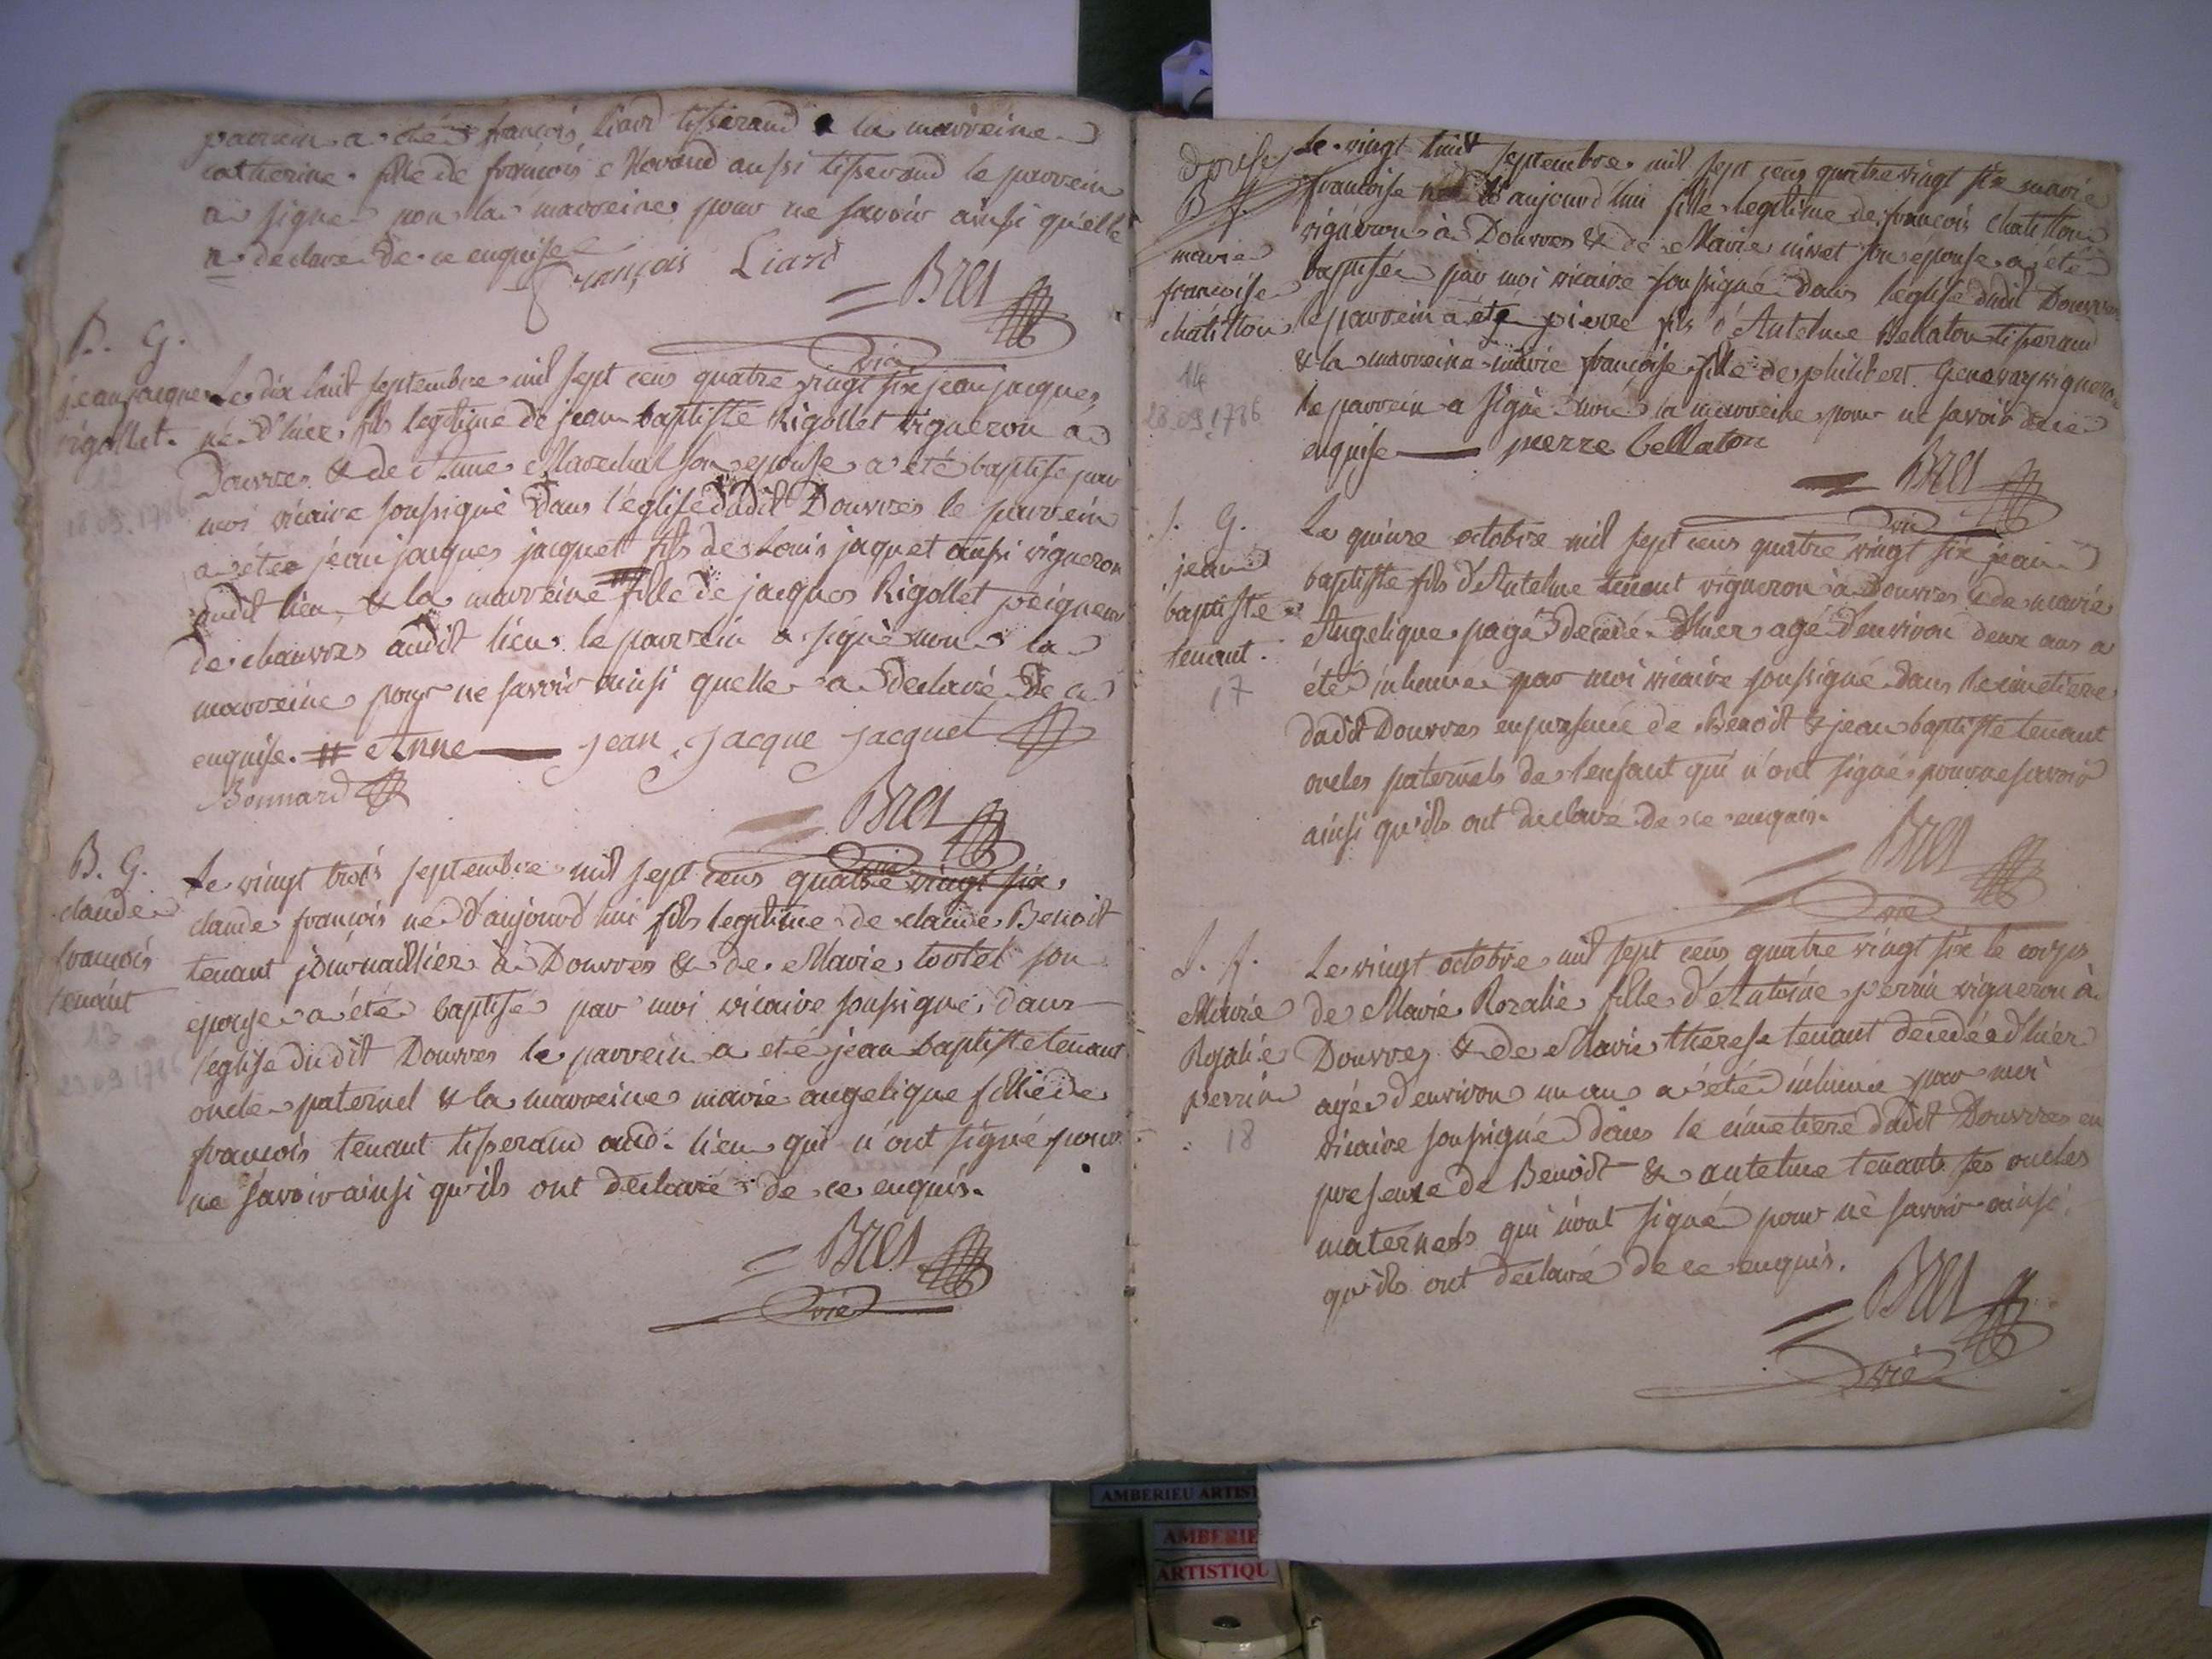 parrein a été françois Liard tisserand & la marreine
catherine fille de françois Novand aussi tisserand le parrein
a signé non la marreine pour ne savoir ainsi qu'elle
a declaré de ce enquise
françois Liard
= Bret
vic
B. G.
jean jacques
rigollet.
12
18.09.1786
Le dix huit septembre mil sept cens quatre vingt six jean jacques
né d'hier fils legitime de jean baptiste Rigollet vigneron à
Douvres & de Anne Marechal son epouse a été baptisé par
moi vicaire soussigné dans l'église dudit Douvres le parrein
a été jean jacques jacquet fils de Louis jaquet aussi vigneron
audit lieu & la marreine # fille de jacques Rigollet peigneur
de chanvres audit lieu le parrein a signé non la
marreine pour ne savoir ainsi quelle a declaré de ce
enquise. # Anne — jean jacque jacquet
Bonnard
= Bret
vic
B. G.
claude
françois
tenant
13
23.09.1786
Le vingt trois septembre mil sept cens quatre vingt six
claude françois né d'aujourd'hui fils legitime de claude Benoit
tenant journaillier à Douvres & de Marie tortel son
epouse a été baptisé par moi vicaire soussigné dans
l'eglise dudit Douvres le parrein a eté jean baptiste tenant
oncle paternel & la marreine marie angelique fille de
françois tenant tisserand aud. lieu qui n'ont signé pour
ne savoir ainsi qu'ils ont declaré de ce enquis.
= Bret
vic
douse
B f.
marie
françoise
chatillon
14
28.09.1786
Le vingt huit septembre mil sept cens quatre vingt six marie
françoise née d'aujourd'hui fille legitime de françois chatillon
vigneron à Douvres & de Marie nivet son épouse a été
baptisée par moi vicaire soussigné dans l'église dudit Douvres
le parrein a été pierre fils d'Antelme Bellaton tisserand
& la marreine marie françoise fille de philibert Genavay vigneron
le parrein a signé non la marreine pour ne savoir de ce
enquise — pierre bellaton
= Bret
vic
S. G.
jean
baptiste
tenant.
17
Le quinze octobre mil sept cens quatre vingt six jean
baptiste fils d'Antelme tenant vigneron à Douvres & de marie
Angelique pagé decedé d'hier agé d'environ deux ans a
été inhumé par moi vicaire soussigné dans le cimetiere
dudit Douvres en presence de Benoit & jean baptiste tenant
oncles paternels de l'enfant qui n'ont signé pour ne savoir
ainsi qu'ils ont declaré de ce enquis.
= Bret
vic
S. f.
Marie
Rosalie
perrin
18
Le vingt octobre mil sept cens quatre vingt six le corps
de Marie Rozalie fille d'Antoine perrin vigneron à
Douvres & de Marie therese tenant decedée d'hier
agée d'environ un an a été inhumé par moi
vicaire soussigné dans le cimetiere dudit Douvres en
presence de Benoit & antelme tenant ses oncles
maternels qui n'ont signé pour ne savoir ainsi
qu'ils ont declaré de ce enquis.
= Bret
vic
AMBERIEU ARTIST
AMBERIE
ARTISTIQU